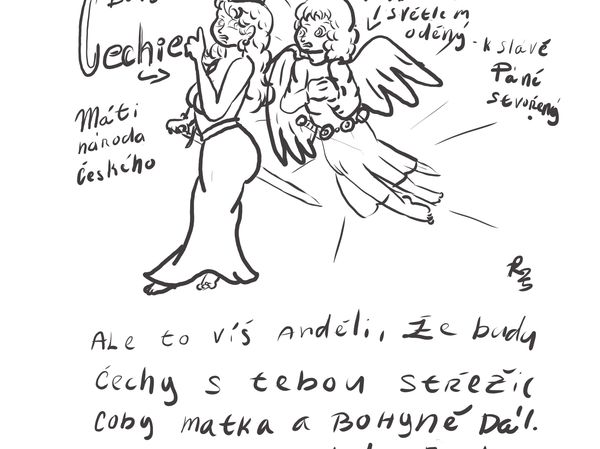 Čechie
Máti
národa
českého
světlem
oděný - k slávě
Páně
stvořený
R25
Ale to víš anděli, že budu
Čechy s tebou střežic
Coby matka a Bohyně Dál.